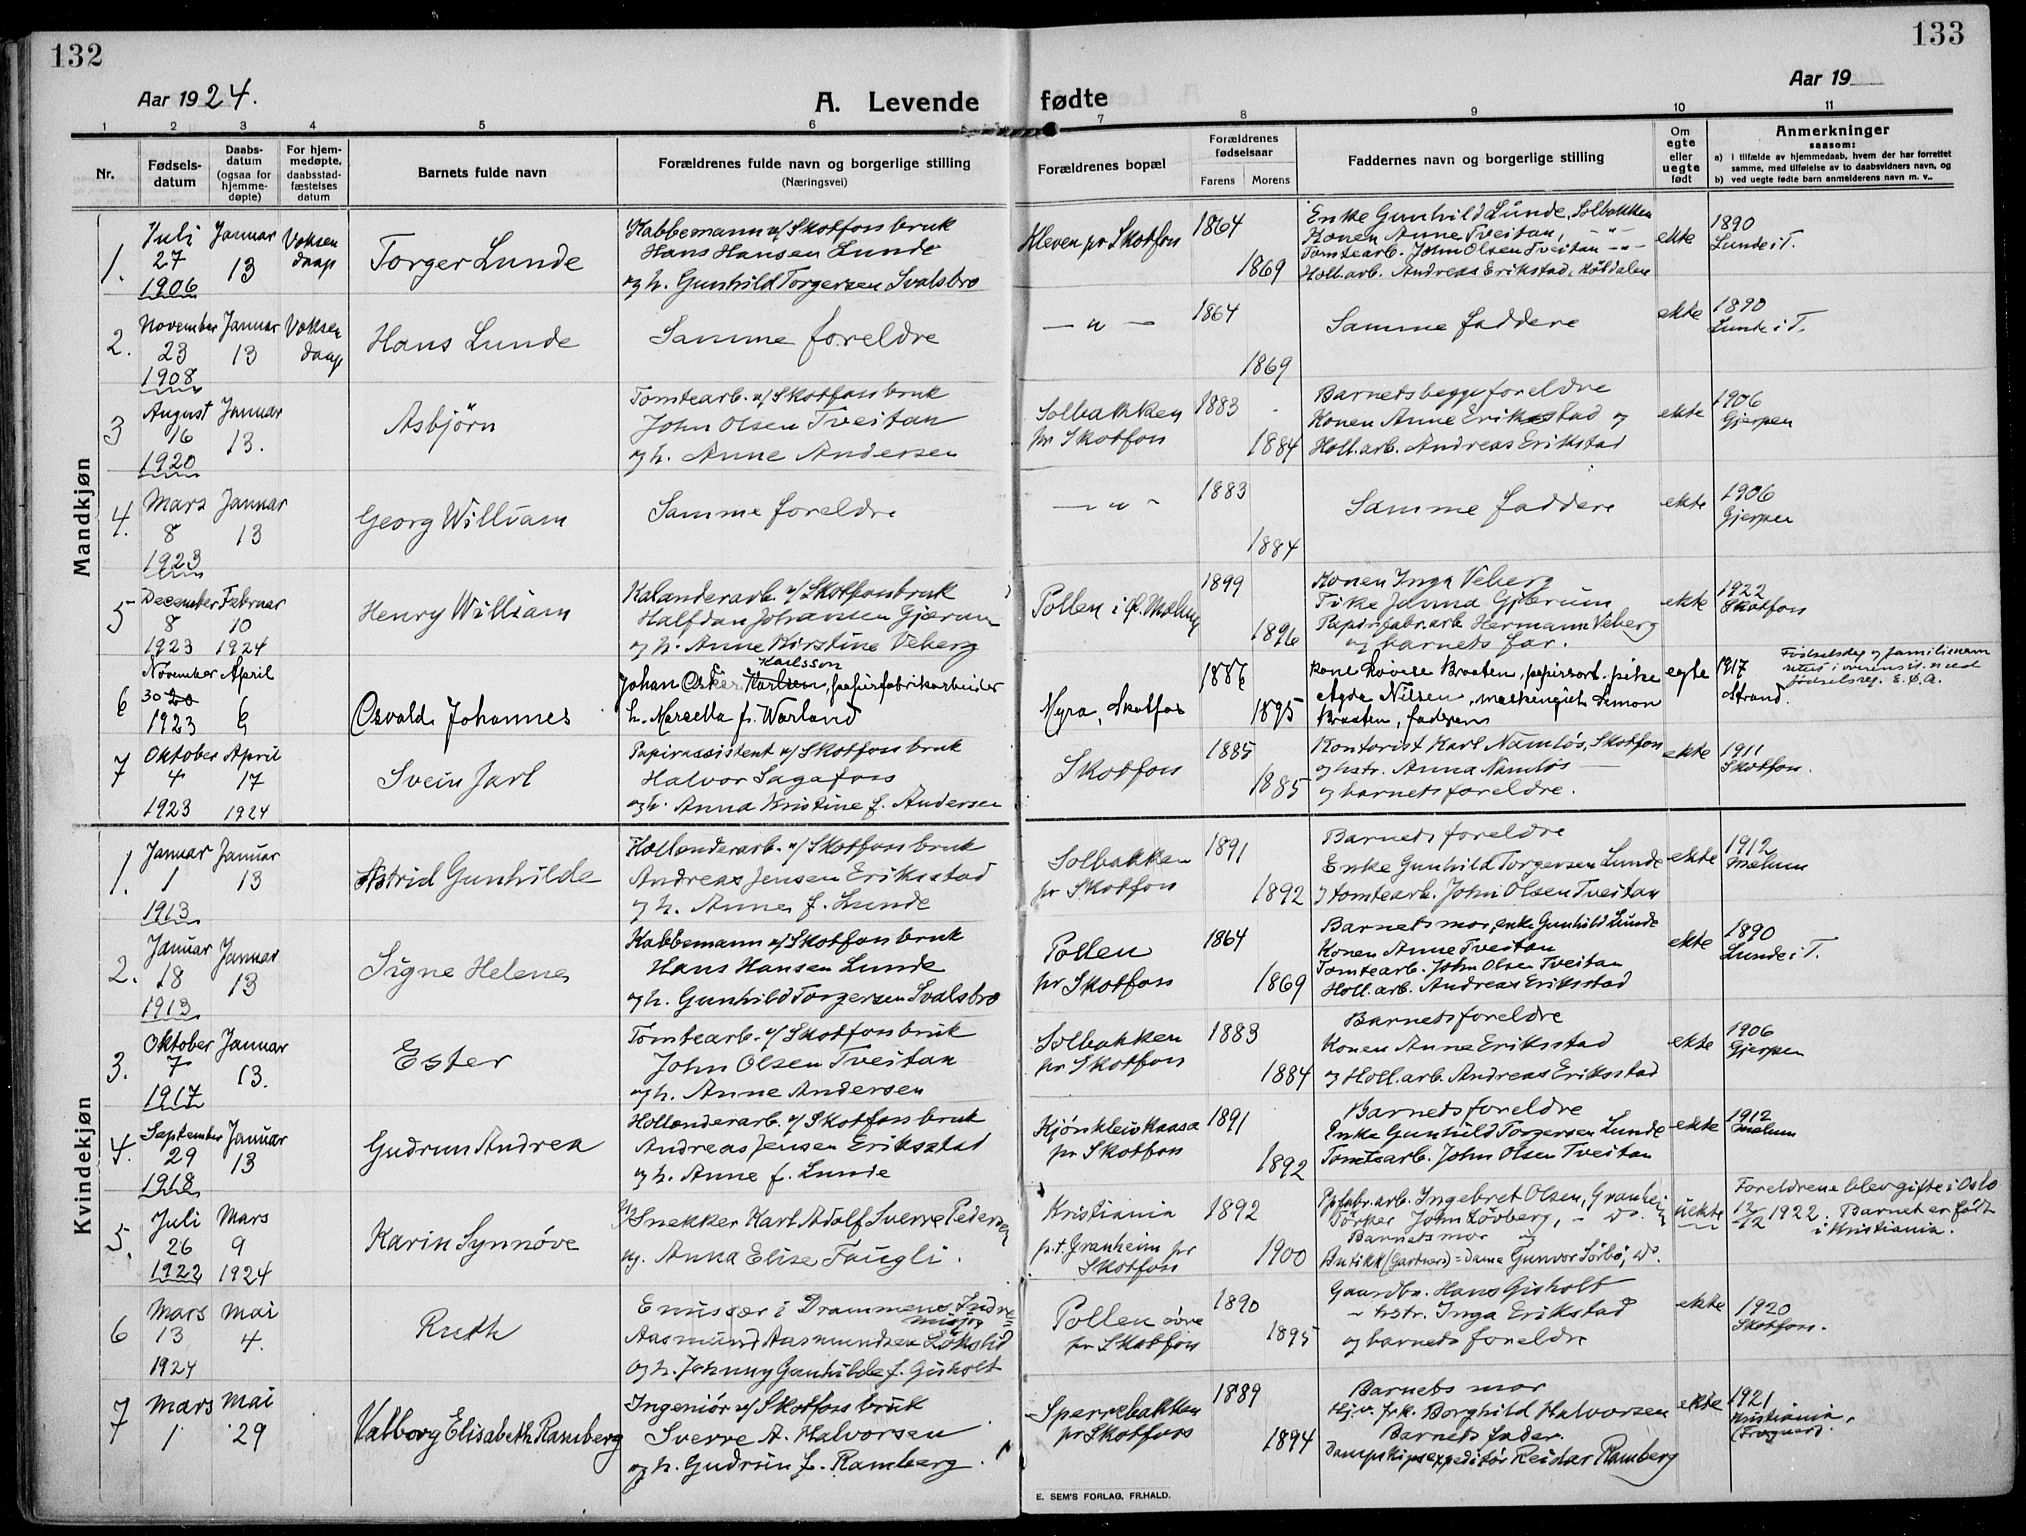 132
133
Aar 1924.
A. Levende fødte
Aar 19
1 2 3 4 5 6 7 8 9 10 11
Nr.
Fødsels-
datum
Daabs-
datum
(ogsaa for
hjemme-
døpte)
For hjem-
medøpte,
daabsstad-
fæstelses
datum
Barnets fulde navn
Forældrenes fulde navn og borgerlige stilling
(Næringsvei)
Forældrenes bopæl
Forældrenes
fødselsaar
Farens
Morens
Faddernes navn og borgerlige stilling
Om
egte
eller
uegte
født
Anmerkninger
saasom:
a) i tilfælde av hjemmedaab, hvem der har forrettet
samme, med tilføielse av to daabsvidners navn, og
b) ved uegte fødte barn anmelderens navn m. v..
Mandkjøn
1.
Juli
27
1906
Januar
13
Voksen
daap
Torger Lunde
Kabbemann v/ Skotfoss bruk
Hans Hansen Lunde
og h. Gunhild Torgersen Svalsbro
Kleven pr Skotfoss
1864
1869
Enke Gunhild Lunde, Solbakken
Konen Anne Tveitan, - " -
Tomtearb. John Olsen Tveitan - " -
Holl.arb. Andreas Erikstad,
ekte
1890
Lunde i T.
2.
November
23
1908
Januar
13
Voksen
daap
Hans Lunde
Samme foreldre
- " -
1864
1869
Samme faddere
ekte
1890
Lunde i T.
3
August
16
1920
Januar
13.
Asbjørn
Tomtearb. v/ Skotfoss bruk
John Olsen Tveitan
og h. Anne Andersen
Solbakken
pr Skotfoss
1883
1884
Barnets begge foreldre
Konen Anne Erikstad og
Holl.arb. Andreas Erikstad
ekte
1906
Gjerpen
4.
Mars
8
1923
Januar
13
Georg William
Samme foreldre
- " -
1883
1884
Samme faddere
ekte
1906
Gjerpen
5
December
8
1923
Februar
10
1924
Henry William
Kalanderarb. v/ Skotfoss bruk
Halfdan Johansen Gjærum
og h. Anne Kirstine Veberg
Pollen i Ø. Mælum
1899
1896
Konen Inga Veberg
Pike Gjærum
Papirfabr.arb Hermann Veberg
og barnets far.
ekte
1922
Skotfoss
6
November
30 20
1923
April
6
Osvald Johannes
Karlsson
Johan Oskar Karlsen, papirfabrikarbeider
h. Marsella f. Warland
Myra, Skotfos
1886
1895
Kone Lovise Braaten, papirsort. pike
Agda Nilsen, maskingut Simon
Braaten, faderen
egte
1917
Strand.
Fødselsdag og familienavn
rettet i overensst. med
fødselsreg. E.Ø.A.
7
Oktober
4
1923
April
17
1924
Svein Jarl
Papirassistent v/ Skotfoss bruk
Halvor Sagafoss
og h. Anna Kristine f. Andersen
Skotfoss
1885
1885
Kontorist Karl Namløs, Skotfoss
og hstr. Anna Namløs —
og barnets foreldre.
ekte
1911
Skotfoss.
Kvindekjøn
1.
Januar
1
1913
Januar
13
Astrid Gunhilde
Hollenderarb. v/ Skotfoss bruk
Andreas Jensen Eriksstad
og h. Anne f. Lunde
Solbakken
pr Skotfoss
1891
1892
Barnets foreldre
Enke Gunhild Torgersen Lunde
og tomtearb. John Olsen Tveitan
ekte
1912
Mælum
2.
Januar
18
1913
Januar
13
Signe Helene
Kabbemann v/ Skotfoss bruk
Hans Hansen Lunde
og h. Gunhild Torgersen Svalsbro
Pollen
pr Skotfoss
1864
1869
Barnets mor, enke Gunhild Lunde
Konen Anne Tveitan
Tomtearb. John Olsen Tveitan
Holl.arb. Andreas Eriksstad
ekte
1890
Lunde i T.
3.
Oktober
7
1917
Januar
13.
Ester
Tomtearb. v/ Skotfoss bruk
John Olsen Tveitan
og h. Anne Andersen
Solbakken
pr Skotfoss
1883
1884
Barnets foreldre
Konen Anne Eriksstad
og Holl.arb. Andreas Eriksstad
ekte
1906
Gjerpen
4.
September
29
1918
Januar
13
Gudrun Andrea
Hollenderarb. v/ Skotfoss bruk
Andreas Jensen Eriksstad
og h. Anne f. Lunde
pr Skotfoss
1891
1892
Barnets foreldre
Enke Gunhild Torgersen Lunde
Tomtearb. John Olsen Tveitan
ekte
1912
Mælum
5.
Juli
26
1922
Mars
9
1924
Karin Synnøve
Snekker Karl Adolf Sverre Pedersen
og Anna Elise Faugli.
Kristiania
p.t. Granheim pr
Skotfoss
1892
1900
Ppfabr.arb. Ingebret Olsen, Granheim
Tørker John Løvberg, - do.
Barnets mor og
Butikk (Gartneri)=dame Gunvor Sørbø, do.
uekte
Foreldrene blev gifte i Oslo
12/12 1922. Barnet er født
i Kristiania.
6
Mars
13
1924
Mai
4.
Ruth
Emissær i Drammens Indre
misjon
Aasmund Aasmundsen Løkslid
og h. Johnny Gunhilde f. Gisholt
Pollen øvre
pr Skotfoss
1890
1895
Gaardbr. Hans Gisholt
- hstr. Inga Erikstad
og barnets foreldre
ekte
1920
Skotfoss.
7
Mars
1
Mai
29
Valborg Elisabeth Ramberg
Ingeniør v/ Skotfoss bruk
Sverre A. Halvorsen
og h. Gudrun f. Ramberg.
Sperrebakken
pr Skotfoss
1889
1894
Barnets mor
Hjv. frk. Borghild Halvorsen
Barnets fader.
Dampskipsexpeditør Reidar Ramberg
ekte
1921
Kristiania,
(Frogner).
E. SEM'S FORLAG, FR.HALD.